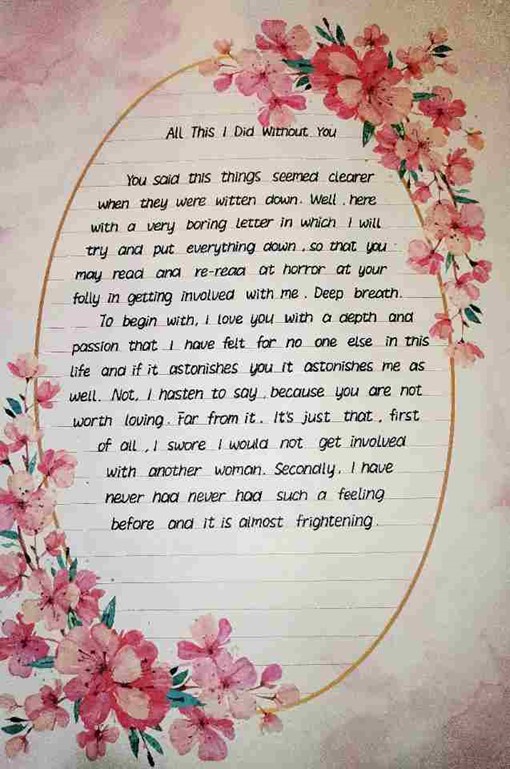 All This I Did Without You
You said this things seemed clearer
when they were witten down. Well , here
with a very boring letter in which I will
try and put everything down , so that you
may read and re-read at horror at your
folly in getting involved with me . Deep breath.
To begin with, I love you with a depth and
passion that I have felt for no one else in this
life and if it astonishes you it astonishes me as
well. Not, I hasten to say , because you are not
worth loving . Far from it . It's just that , first
of all , I swore I would not get involved
with another woman. Secondly, I have
never had never had such a feeling
before and it is almost frightening .